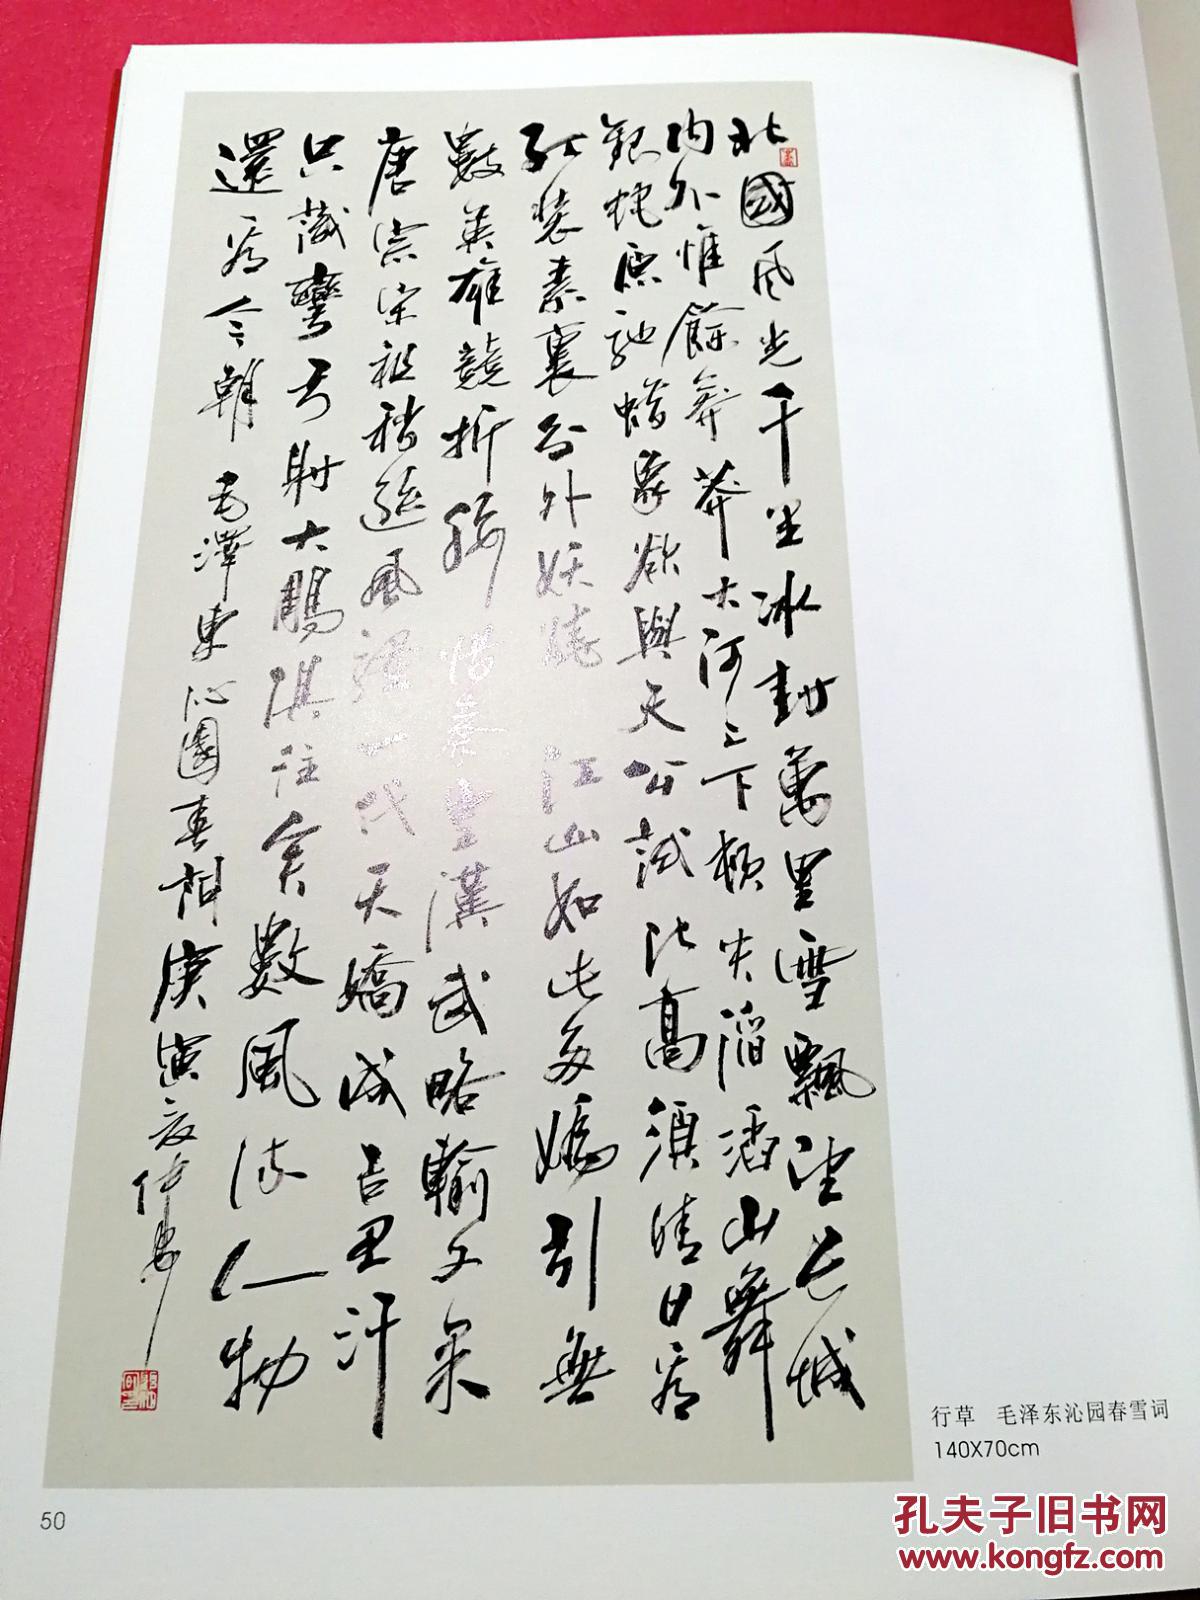 北國風光千里冰封萬里雪飄望長城
内外惟餘莽莽大河上下頓失滔滔山舞
銀蛇原馳蜡象欲與天公試比高須晴日看
紅装素裹分外妖嬈 江山如此多嬌引無
數英雄競折腰 惜秦皇漢武略輸文采
唐宗宋祖稍遜風騷一代天嬌成吉思汗
只識彎弓射大鵰俱往矣數風流人物
還看今朝 毛澤東沁園春詞庚寅夏仲
行草 毛泽东沁园春雪词
140X70cm
50
孔夫子旧书网
www.kongfz.com